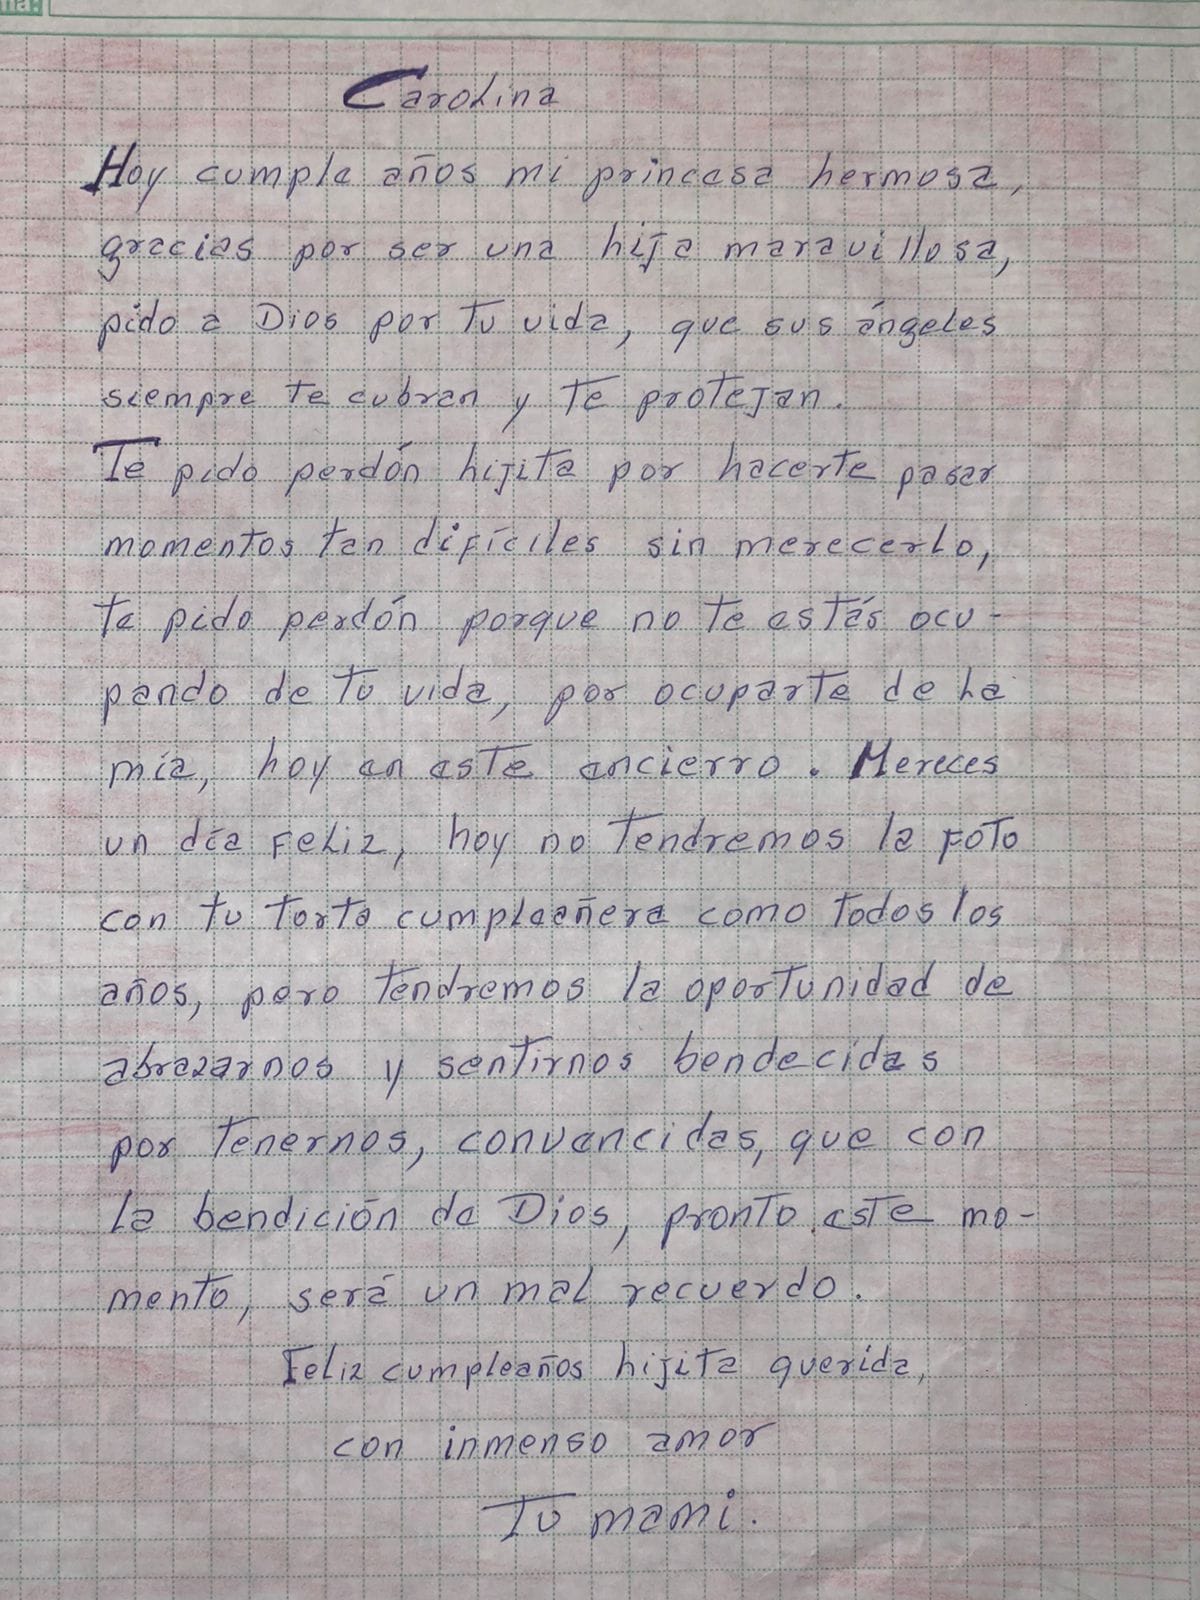 na:
Carolina
Hoy cumple años mi princesa hermosa,
gracias por ser una hija maravillosa,
pido a Dios por tu vida, que sus ángeles
siempre te cubran y te protejan.
Te pido perdón hijita por hacerte pasar
momentos tan difíciles sin merecerlo,
te pido perdón porque no te estás ocu-
pando de tu vida, por ocuparte de la
mía, hoy en este encierro. Mereces
un día feliz, hoy no tendremos la foto
con tu torta cumpleañera como todos los
años, pero tendremos la oportunidad de
abrazarnos y sentirnos bendecidas
por tenernos, convencidas, que con
la bendición de Dios, pronto este mo-
mento, será un mal recuerdo.
Feliz cumpleaños hijita querida,
con inmenso amor
Tu mami.